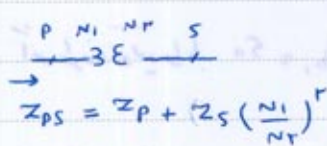 P N1 N2 S
Zps = Zp + Zs (N1/N2)^2